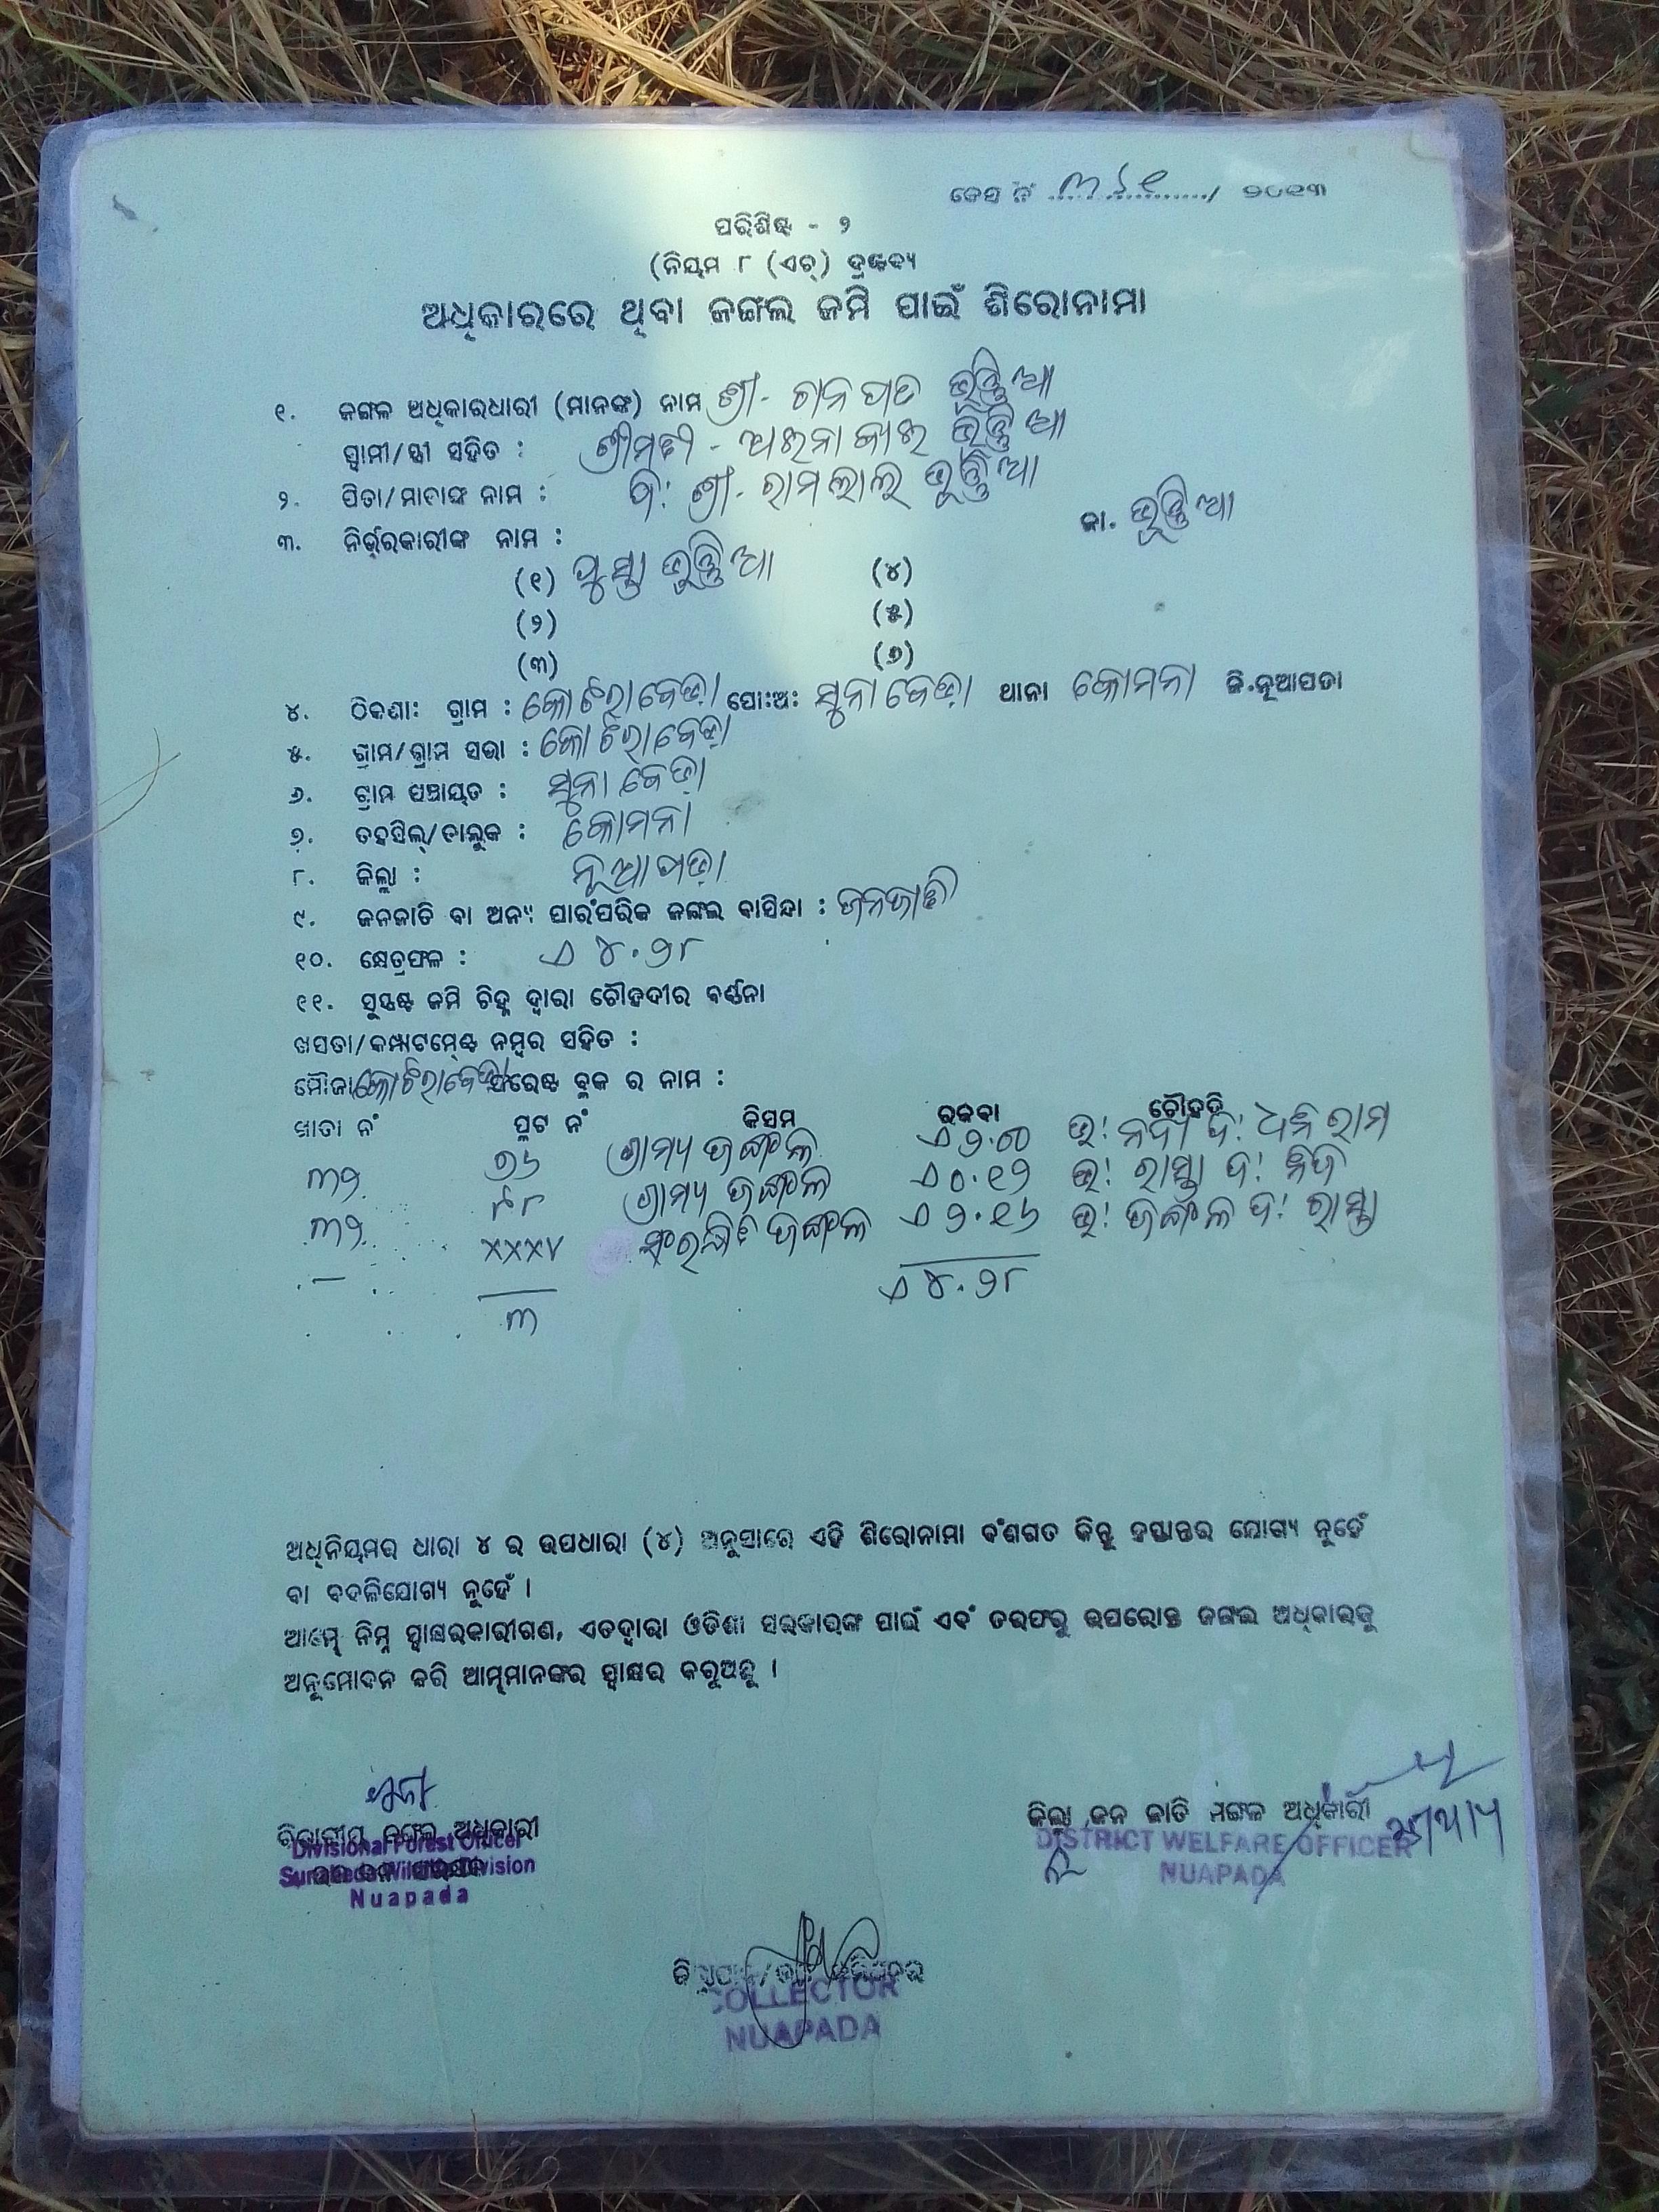 କେସ ନଂ ୩୬୧ / ୨୦୧୩
ପରିଶିଷ୍ଟ - ୨
(ନିୟମ ୮ (ଏଚ୍) ଦ୍ରଷ୍ଟବ୍ୟ
ଅଧିକାରରେ ଥିବା ଜଙ୍ଗଲ ଜମି ପାଇଁ ଶିରୋନାମା
୧. ଜଙ୍ଗଳ ଅଧିକାରଧାରୀ (ମାନଙ୍କ) ନାମ ଶ୍ରୀ- ଦାନପତ ଭୁଞ୍ଜିଆ
ସ୍ଵାମୀ/ସ୍ତ୍ରୀ ସହିତ : ଶ୍ରୀମତୀ - ଭୁଞ୍ଜିଆ
୨. ପିତା/ମାତାଙ୍କ ନାମ : ପି: ଶ୍ରୀ- ରାମଲାଲ ଭୁଞ୍ଜିଆ
ଜା. ଭୁଞ୍ଜିଆ
୩. ନିର୍ଭରକାରୀଙ୍କ ନାମ :
(୧) ଭୁଞ୍ଜିଆ (୪)
(୨) (୫)
(୩) (୬)
୪. ଠିକଣା: ଗ୍ରାମ : କୋଟରାବେଢ଼ା ପୋ:ଅ: ସୁନାବେଢ଼ା ଥାନା କୋମନା ଜି.ନୂଆପଡା
୫. ଗ୍ରାମ/ଗ୍ରାମ ସଭା : କୋଟରାବେଢ଼ା
୬. ଗ୍ରାମ ପଞ୍ଚାୟତ : ସୁନାବେଢ଼ା
୭. ତହସିଲ୍/ତାଲୁକ : କୋମନା
୮. ଜିଲ୍ଲା : ନୂଆପଡ଼ା
୯. ଜନଜାତି ବା ଅନ୍ୟ ପାରଂପରିକ ଜଙ୍ଗଲ ବାସିନ୍ଦା : ଜନଜାତି
୧୦. କ୍ଷେତ୍ରଫଳ : ଏ ୪.୨୮
୧୧. ସୁସ୍ପଷ୍ଟ ଜମି ଚିହ୍ନ ଦ୍ଵାରା ଚୌହଦୀର ବର୍ଣ୍ଣନା
ଖସଡା/କମ୍ପାଟମେଣ୍ଟ ନମ୍ବର ସହିତ :
ମୌଜା କୋଟରାବେଢ଼ା ଫରେଷ୍ଟ ବ୍ଲକ ର ନାମ :
ଖାତା ନଂ ପ୍ଲଟ ନଂ କିସମ ରକବା ଚୌହଦି
୩୨ ୭୬ ଗ୍ରାମ୍ୟ ଜଙ୍ଗଲ ଏ ୨.୦୦ ଉ: ନଦୀ ଦ: ଧନିରାମ
୩୨ ୮୮ ଗ୍ରାମ୍ୟ ଜଙ୍ଗଲ ଏ ୦.୧୨ ଉ: ରାସ୍ତା ଦ: ନିଜ
— XXXV ସଂରକ୍ଷିତ ଜଙ୍ଗଲ ଏ ୨.୧୬ ଉ: ଜଙ୍ଗଲ ଦ: ରାସ୍ତା
୩ ଏ ୪.୨୮
ଅଧିନିୟମର ଧାରା ୪ ର ଉପଧାରା (୪) ଅନୁସାରେ ଏହି ଶିରୋନାମା ବଂଶଗତ କିନ୍ତୁ ହସ୍ତାନ୍ତର ଯୋଗ୍ୟ ନୁହେଁ
ବା ବଦଳିଯୋଗ୍ୟ ନୁହେଁ ।
ଆମ୍ଭେ ନିମ୍ନ ସ୍ଵାକ୍ଷରକାରୀଗଣ, ଏତଦ୍ଵାରା ଓଡିଶା ସରକାରଙ୍କ ପାଇଁ ଏବଂ ତରଫରୁ ଉପରୋକ୍ତ ଜଙ୍ଗଲ ଅଧିକାରକୁ
ଅନୁମୋଦନ କରି ଆମ୍ଭମାନଙ୍କର ସ୍ଵାକ୍ଷର କରୁଅଛୁ ।
ବିଭାଗୀୟ ଜଙ୍ଗଲ ଅଧିକାରୀ
Divisional Forest Officer
Sunabeda Wildlife Division
Nuapada
ଜିଲ୍ଲା ଜନ ଜାତି ମଙ୍ଗଳ ଅଧିକାରୀ
DISTRICT WELFARE OFFICER
NUAPADA
COLLECTOR
NUAPADA